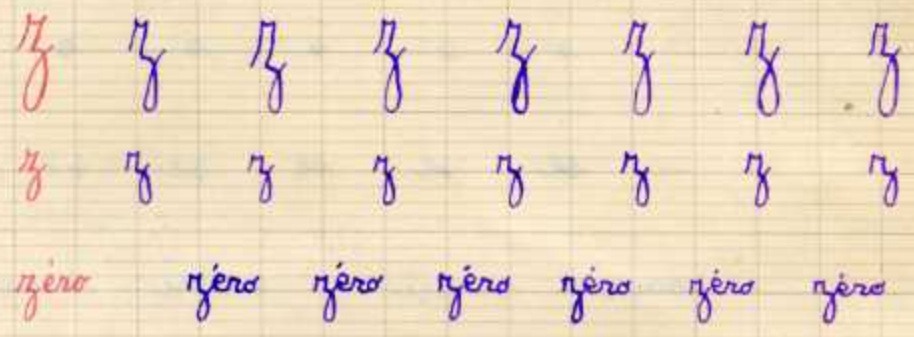 z z z z z z z z
z z z z z z z z
zéro zéro zéro zéro zéro zéro zéro